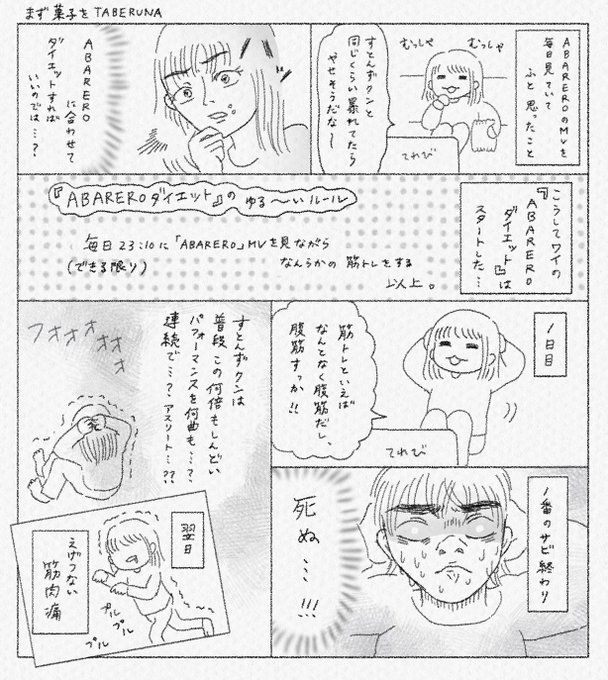 まず菓子を TABERUNA
ABAREROのMVを
毎日見ていて
ふと思ったこと
むっしゃ
むっしゃ
てれび
すとんずクンと
同じくらい暴れてたら
やせそうだな〜
ABARERO
に合わせて
ダイエットすれば
いいのでは…?
こうしてワイの
『ABARERO
ダイエット』は
スタートした…
『ABAREROダイエット』の ゆる〜いルール
毎日23:10に「ABARERO」MVを見ながら
(できる限り)
なんらかの筋トレをする
以上。
1日目
筋トレといえば
なんとなく腹筋だし、
腹筋すっか!!
てれび
1番のサビ終わり
死ぬ…!!!
すとんずクンは
普段この何倍もしんどい
パフォーマンスを何曲も…?
連続で…? アスリート…??
フオオオオオオ
死
翌日
えげつない
筋肉痛
プル
プル
プル